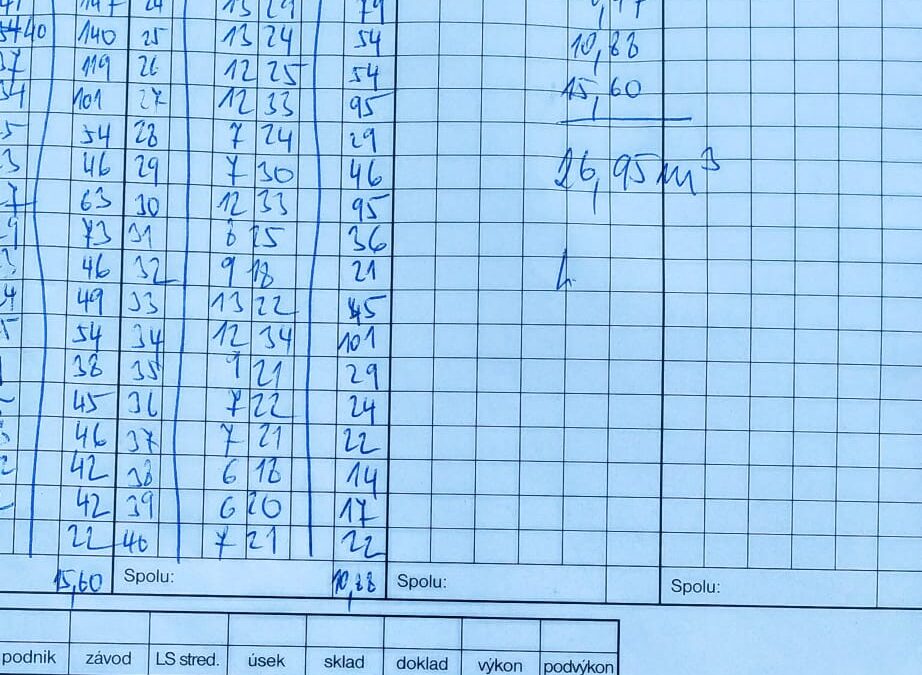 140 25 13 24 54 10,88
119 26 12 25 54
101 27 12 33 95 15,60
54 28 7 24 29
46 29 7 30 46 26,95 m³
63 30 12 33 95
73 31 8 25 36
46 32 9 18 21
49 33 13 22 45
54 34 12 34 101
38 35 9 21 29
45 36 7 22 24
46 37 7 21 22
42 38 6 18 14
42 39 6 20 17
22 40 7 21 22
15,60 Spolu: 10,88 Spolu: Spolu:
podnik závod LS stred. úsek sklad doklad výkon podvýkon